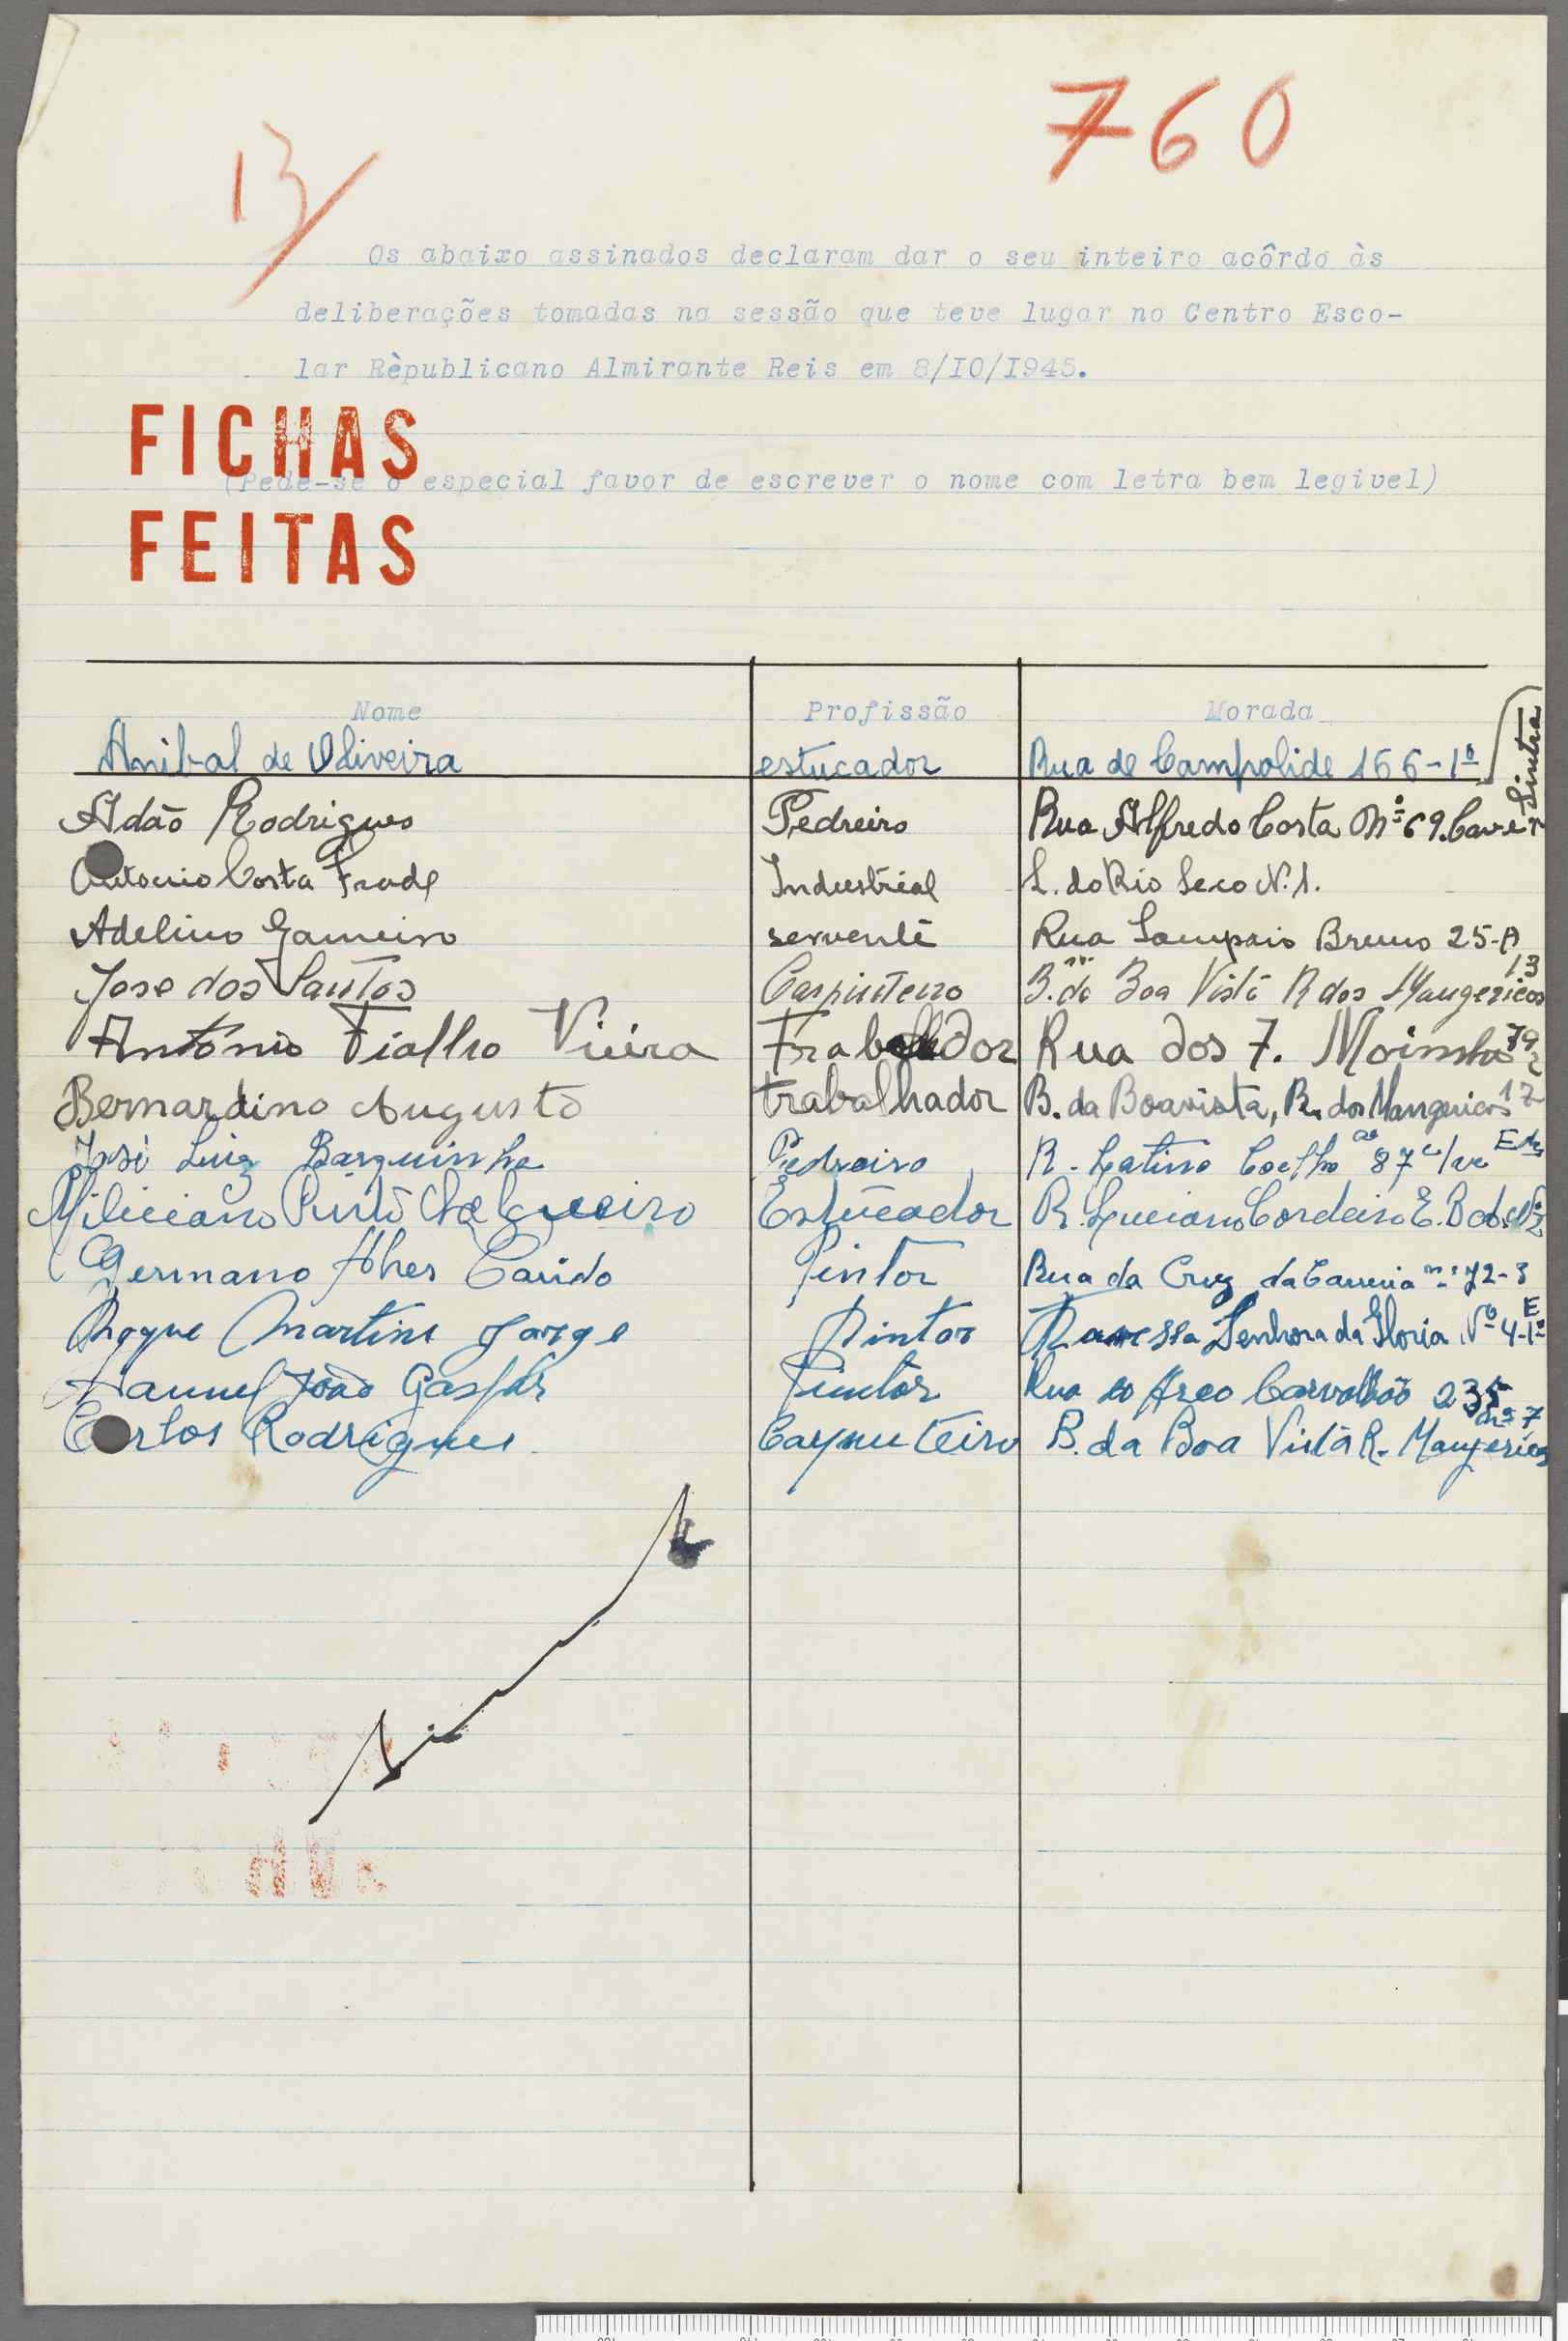 760
13
Os abaixo assinados declaram dar o seu inteiro acôrdo às
deliberações tomadas na sessão que teve lugar no Centro Esco-
lar Rèpublicano Almirante Reis em 8/IO/I945.
FICHAS
(Pede-se o especial favor de escrever o nome com letra bem legivel)
FEITAS
Nome Profissão Morada
Anibal de Oliveira estucador Rua de Campolide 166-1º
Sintra
Adão Rodrigues Pedreiro Rua Alfredo Costa Nº 69.
Antonio Costa Frade Industrial L. do Rio Seco N. 1.
Adelino Gameiro servente Rua Sampaio Bruno 25-A
Jose dos Santos Carpinteiro B. da Boa Vista R dos Mangericos 13
António Fialho Vieira Trabalhador Rua dos 7. Moinhos 79
Bernardino Augusto trabalhador B. da Boavista, R. dos Mangericos 17
José Luiz Barquinha Pedreiro R. Latino Coelho 87 c/ve
Pinto Estucador R. Luciano Cordeiro
Germano Alves Carido Pintor Rua da Cruz da Carreira nº 72-3
Roque Martins Jorge Pintor Travessa Senhora da Gloria Nº 4-1º E
Manuel João Gaspar Pintor Rua do Arco Carvalhão 235
Carlos Rodrigues Carpinteiro B. da Boa Vista R. Mangericos nº 7